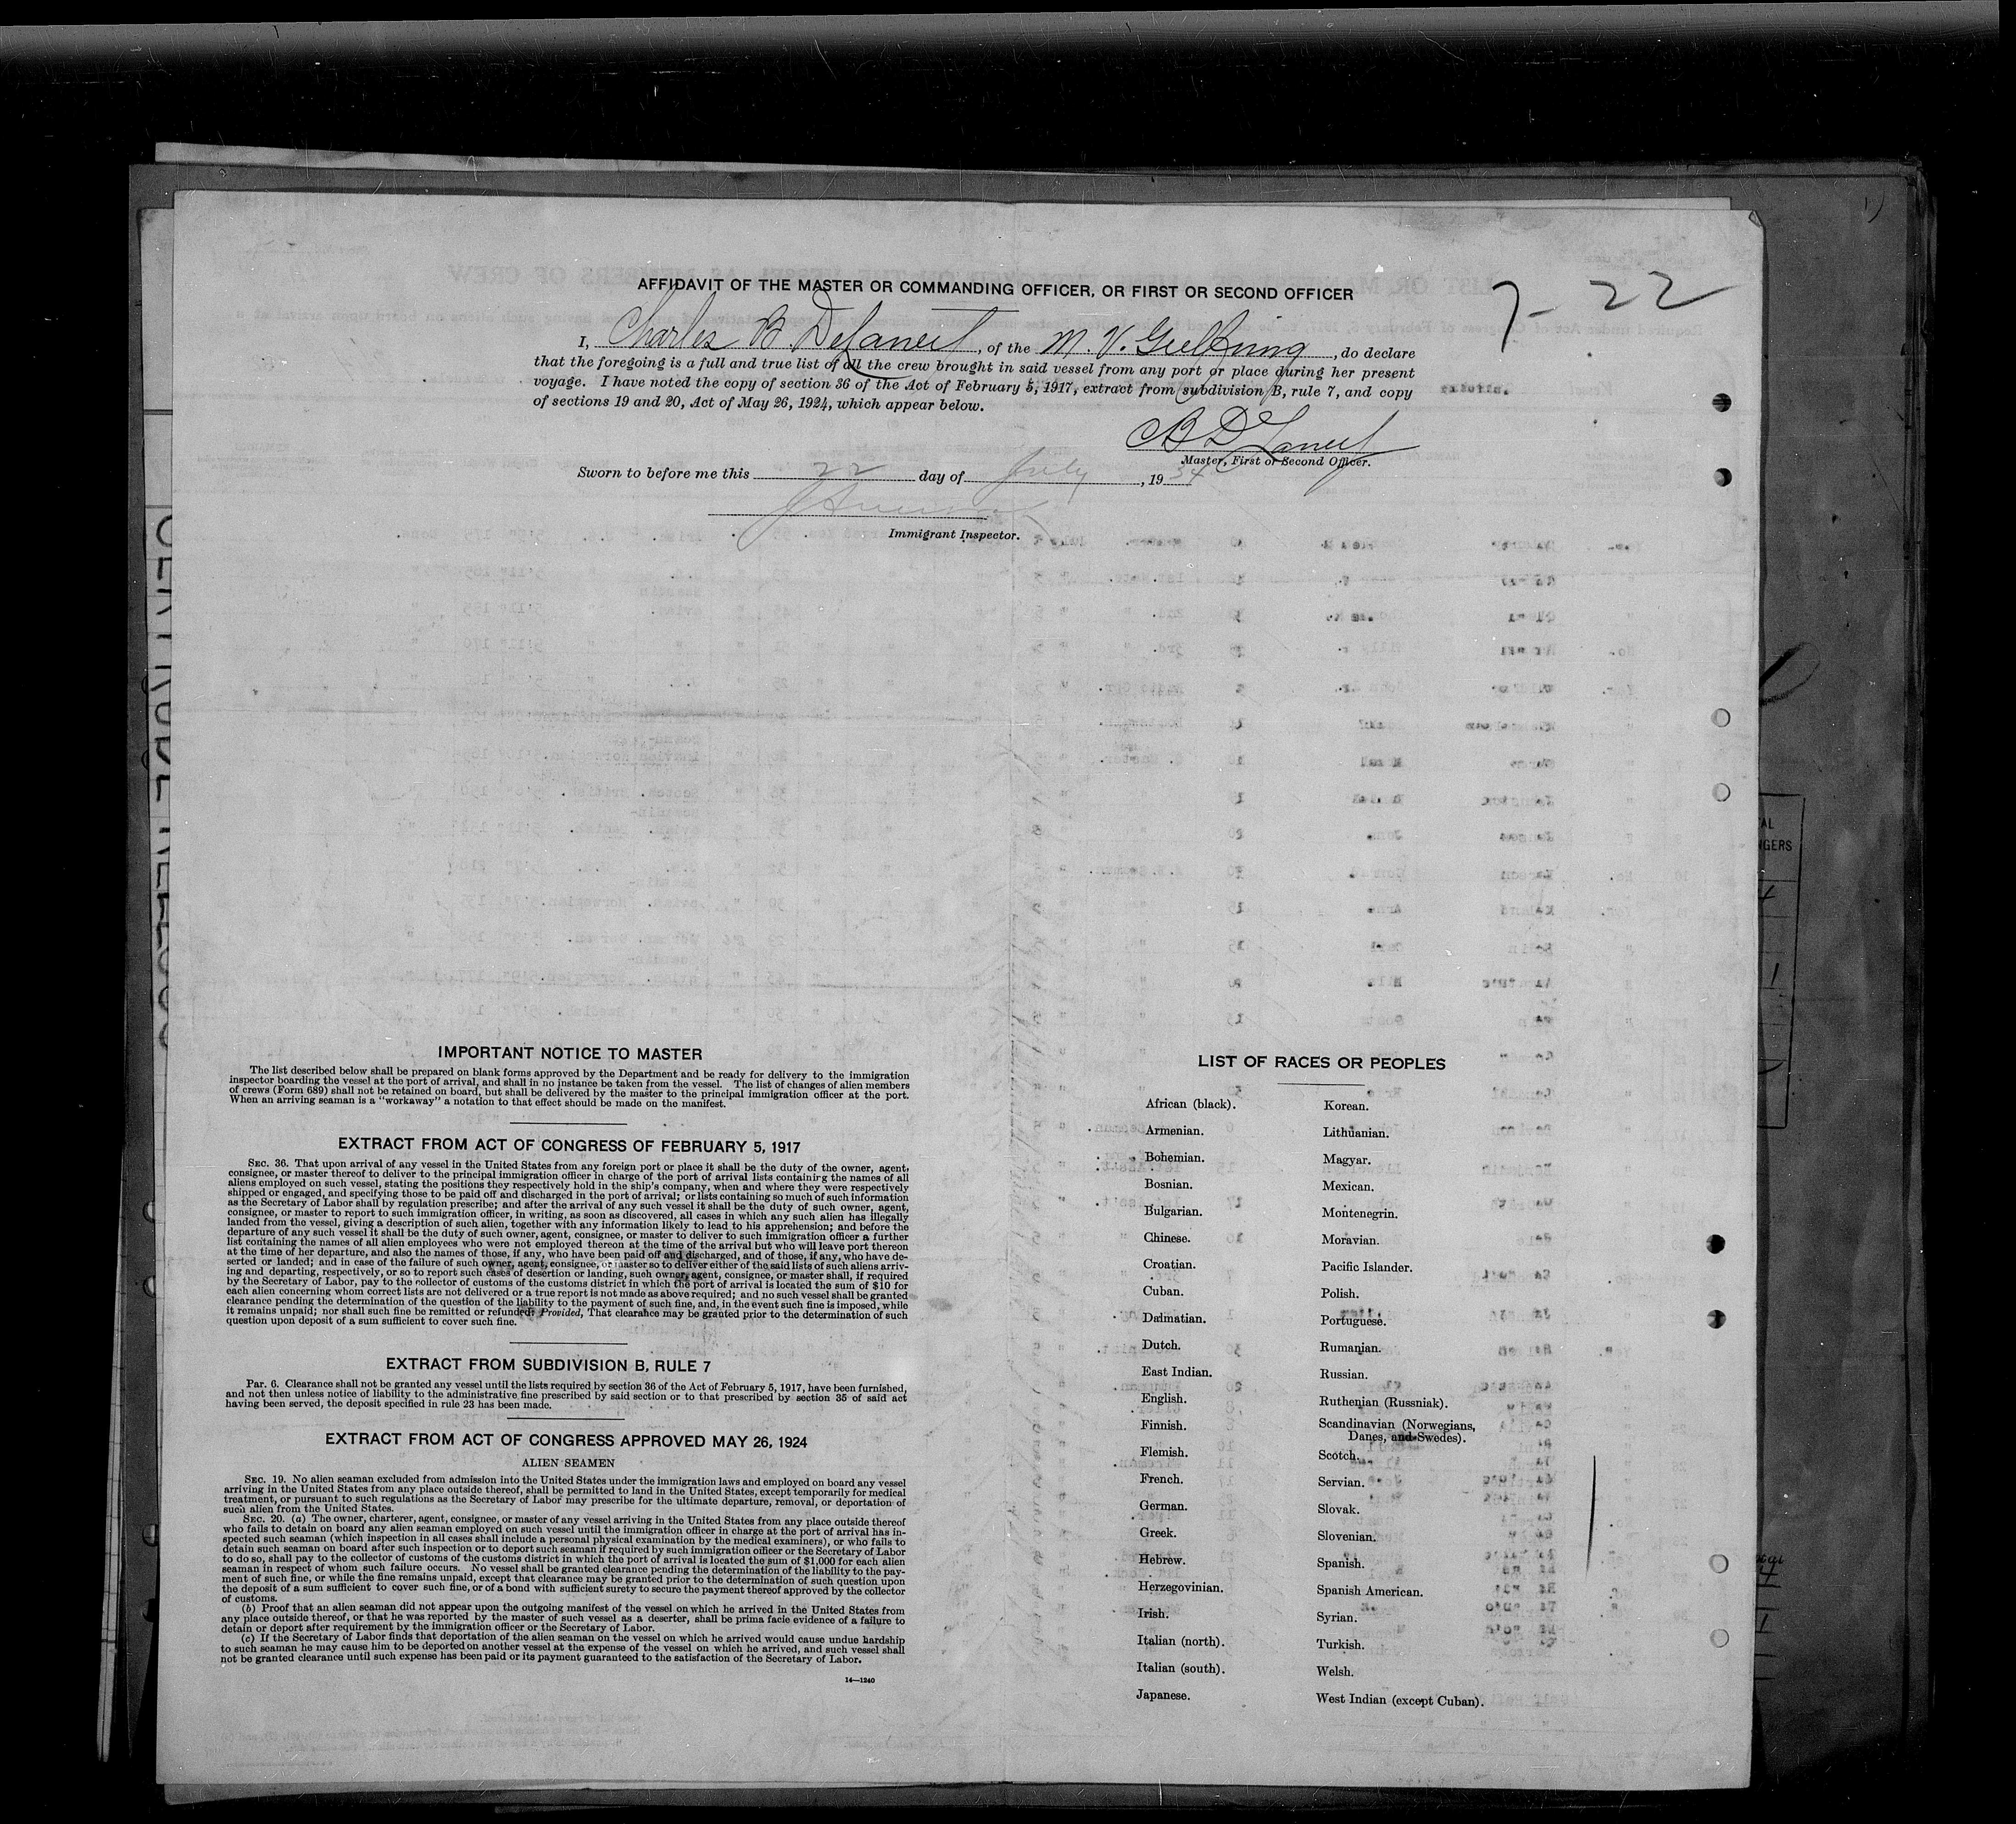 7- 22
AFFIDAVIT OF THE MASTER OR COMMANDING OFFICER, OR FIRST OR SECOND OFFICER
I, Charles B. , of the M. V. , do declare
that the foregoing is a full and true list of all the crew brought in said vessel from any port or place during her present
voyage. I have noted the copy of section 36 of the Act of February 5, 1917, extract from subdivision B, rule 7, and copy
of sections 19 and 20, Act of May 26, 1924, which appear below.
Master, First or Second Officer.
Sworn to before me this 22 day of July, 1934
Immigrant Inspector.
IMPORTANT NOTICE TO MASTER
The list described below shall be prepared on blank forms approved by the Department and be ready for delivery to the immigration
inspector boarding the vessel at the port of arrival, and shall in no instance be taken from the vessel. The list of changes of alien members
of crews (Form 689) shall not be retained on board, but shall be delivered by the master to the principal immigration officer at the port.
When an arriving seaman is a "workaway" a notation to that effect should be made on the manifest.
EXTRACT FROM ACT OF CONGRESS OF FEBRUARY 5, 1917
SEC. 36. That upon arrival of any vessel in the United States from any foreign port or place it shall be the duty of the owner, agent,
consignee, or master thereof to deliver to the principal immigration officer in charge of the port of arrival lists containing the names of all
aliens employed on such vessel, stating the positions they respectively hold in the ship's company, when and where they were respectively
shipped or engaged, and specifying those to be paid off and discharged in the port of arrival; or lists containing so much of such information
as the Secretary of Labor shall by regulation prescribe; and after the arrival of any such vessel it shall be the duty of such owner, agent,
consignee, or master to report to such immigration officer, in writing, as soon as discovered, all cases in which any such alien has illegally
landed from the vessel, giving a description of such alien, together with any information likely to lead to his apprehension; and before the
departure of any such vessel it shall be the duty of such owner, agent, consignee, or master to deliver to such immigration officer a further
list containing the names of all alien employees who were not employed thereon at the time of the arrival but who will leave port thereon
at the time of her departure, and also the names of those, if any, who have been paid off and discharged, and of those, if any, who have de-
serted or landed; and in case of the failure of such owner, agent, consignee, or master so to deliver either of the said lists of such aliens arriv-
ing and departing, respectively, or so to report such cases of desertion or landing, such owner, agent, consignee, or master shall, if required
by the Secretary of Labor, pay to the collector of customs of the customs district in which the port of arrival is located the sum of $10 for
each alien concerning whom correct lists are not delivered or a true report is not made as above required; and no such vessel shall be granted
clearance pending the determination of the question of the liability to the payment of such fine, and, in the event such fine is imposed, while
it remains unpaid; nor shall such fine be remitted or refunded: Provided, That clearance may be granted prior to the determination of such
question upon deposit of a sum sufficient to cover such fine.
EXTRACT FROM SUBDIVISION B, RULE 7
Par. 6. Clearance shall not be granted any vessel until the lists required by section 36 of the Act of February 5, 1917, have been furnished,
and not then unless notice of liability to the administrative fine prescribed by said section or to that prescribed by section 35 of said act
having been served, the deposit specified in rule 23 has been made.
EXTRACT FROM ACT OF CONGRESS APPROVED MAY 26, 1924
ALIEN SEAMEN
SEC. 19. No alien seaman excluded from admission into the United States under the immigration laws and employed on board any vessel
arriving in the United States from any place outside thereof, shall be permitted to land in the United States, except temporarily for medical
treatment, or pursuant to such regulations as the Secretary of Labor may prescribe for the ultimate departure, removal, or deportation of
such alien from the United States.
SEC. 20. (a) The owner, charterer, agent, consignee, or master of any vessel arriving in the United States from any place outside thereof
who fails to detain on board any alien seaman employed on such vessel until the immigration officer in charge at the port of arrival has in-
spected such seaman (which inspection in all cases shall include a personal physical examination by the medical examiners), or who fails to
detain such seaman on board after such inspection or to deport such seaman if required by such immigration officer or the Secretary of Labor
to do so, shall pay to the collector of customs of the customs district in which the port of arrival is located the sum of $1,000 for each alien
seaman in respect of whom such failure occurs. No vessel shall be granted clearance pending the determination of the liability to the pay-
ment of such fine, or while the fine remains unpaid, except that clearance may be granted prior to the determination of such question upon
the deposit of a sum sufficient to cover such fine, or of a bond with sufficient surety to secure the payment thereof approved by the collector
of customs.
(b) Proof that an alien seaman did not appear upon the outgoing manifest of the vessel on which he arrived in the United States from
any place outside thereof, or that he was reported by the master of such vessel as a deserter, shall be prima facie evidence of a failure to
detain or deport after requirement by the immigration officer or the Secretary of Labor.
(c) If the Secretary of Labor finds that deportation of the alien seaman on the vessel on which he arrived would cause undue hardship
to such seaman he may cause him to be deported on another vessel at the expense of the vessel on which he arrived, and such vessel shall
not be granted clearance until such expense has been paid or its payment guaranteed to the satisfaction of the Secretary of Labor.
14—1240
LIST OF RACES OR PEOPLES
African (black).
Armenian.
Bohemian.
Bosnian.
Bulgarian.
Chinese.
Croatian.
Cuban.
Dalmatian.
Dutch.
East Indian.
English.
Finnish.
Flemish.
French.
German.
Greek.
Hebrew.
Herzegovinian.
Irish.
Italian (north).
Italian (south).
Japanese.
Korean.
Lithuanian.
Magyar.
Mexican.
Montenegrin.
Moravian.
Pacific Islander.
Polish.
Portuguese.
Rumanian.
Russian.
Ruthenian (Russniak).
Scandinavian (Norwegians,
Danes, and Swedes).
Scotch.
Servian.
Slovak.
Slovenian.
Spanish.
Spanish American.
Syrian.
Turkish.
Welsh.
West Indian (except Cuban).